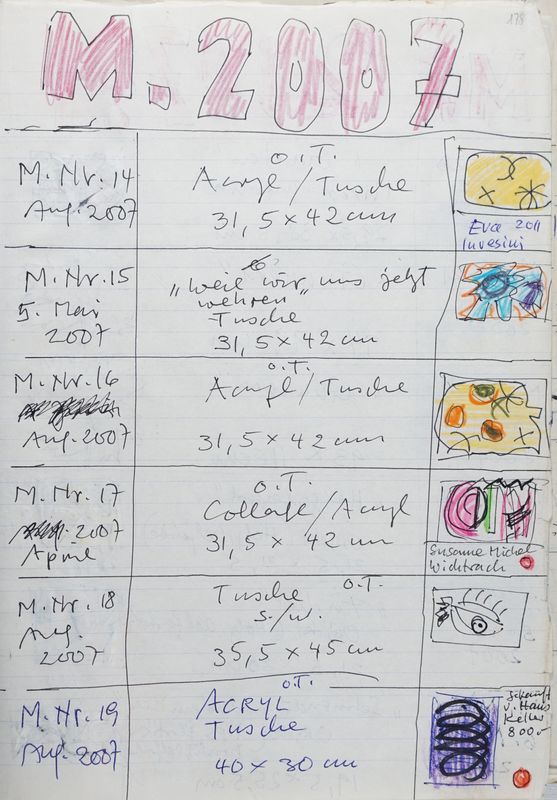 178
M. 2007
M. Nr. 14
Aug. 2007
o.T.
Acryl / Tusche
31,5 x 42 cm
Eva 2011
M. Nr. 15
5. Mai
2007
„Weil wir uns jetzt
wehren"
Tusche
31,5 x 42 cm
M. Nr. 16
Aug. 2007
o.T.
Acryl / Tusche
31,5 x 42 cm
M. Nr. 17
2007
April
o.T.
Collage / Acryl
31,5 x 42 cm
Susanne Michel
Wichtrach
M. Nr. 18
Aug.
2007
Tusche o.T.
s./w.
35,5 x 45 cm
M. Nr. 19
Aug. 2007
o.T.
ACRYL
Tusche
40 x 30 cm
gekauft
v. Hans
Keller
800.-